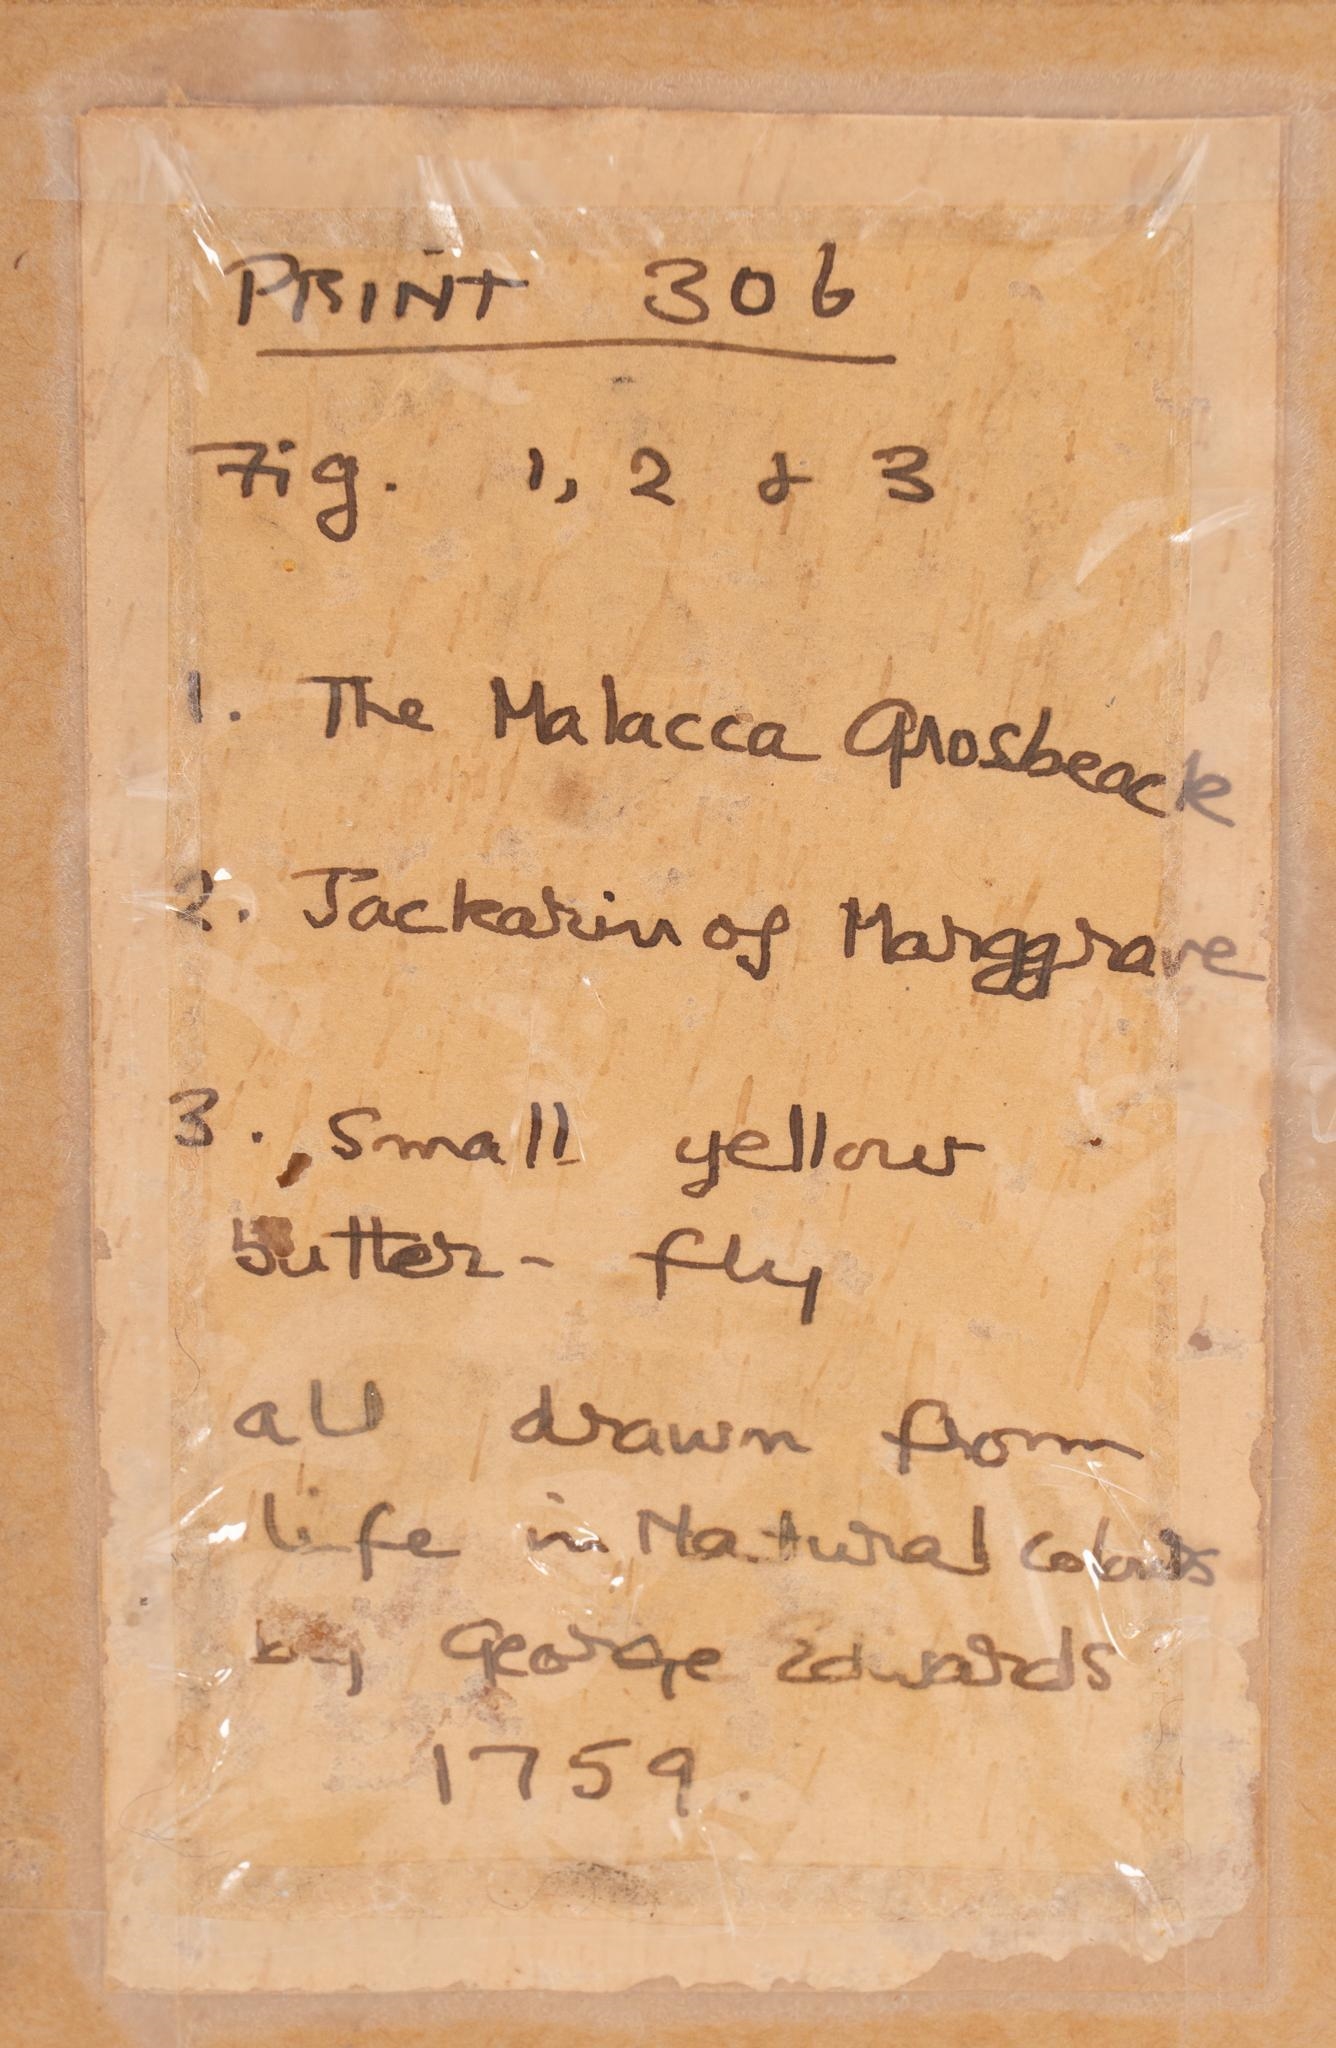 PRINT 306
Fig. 1, 2 & 3
1. The Malacca Grosbeack
2. Jackarin of Marggrave
3. Small yellow
butter- fly
all drawn from
life in Natural colours
by George Edwards
1759.